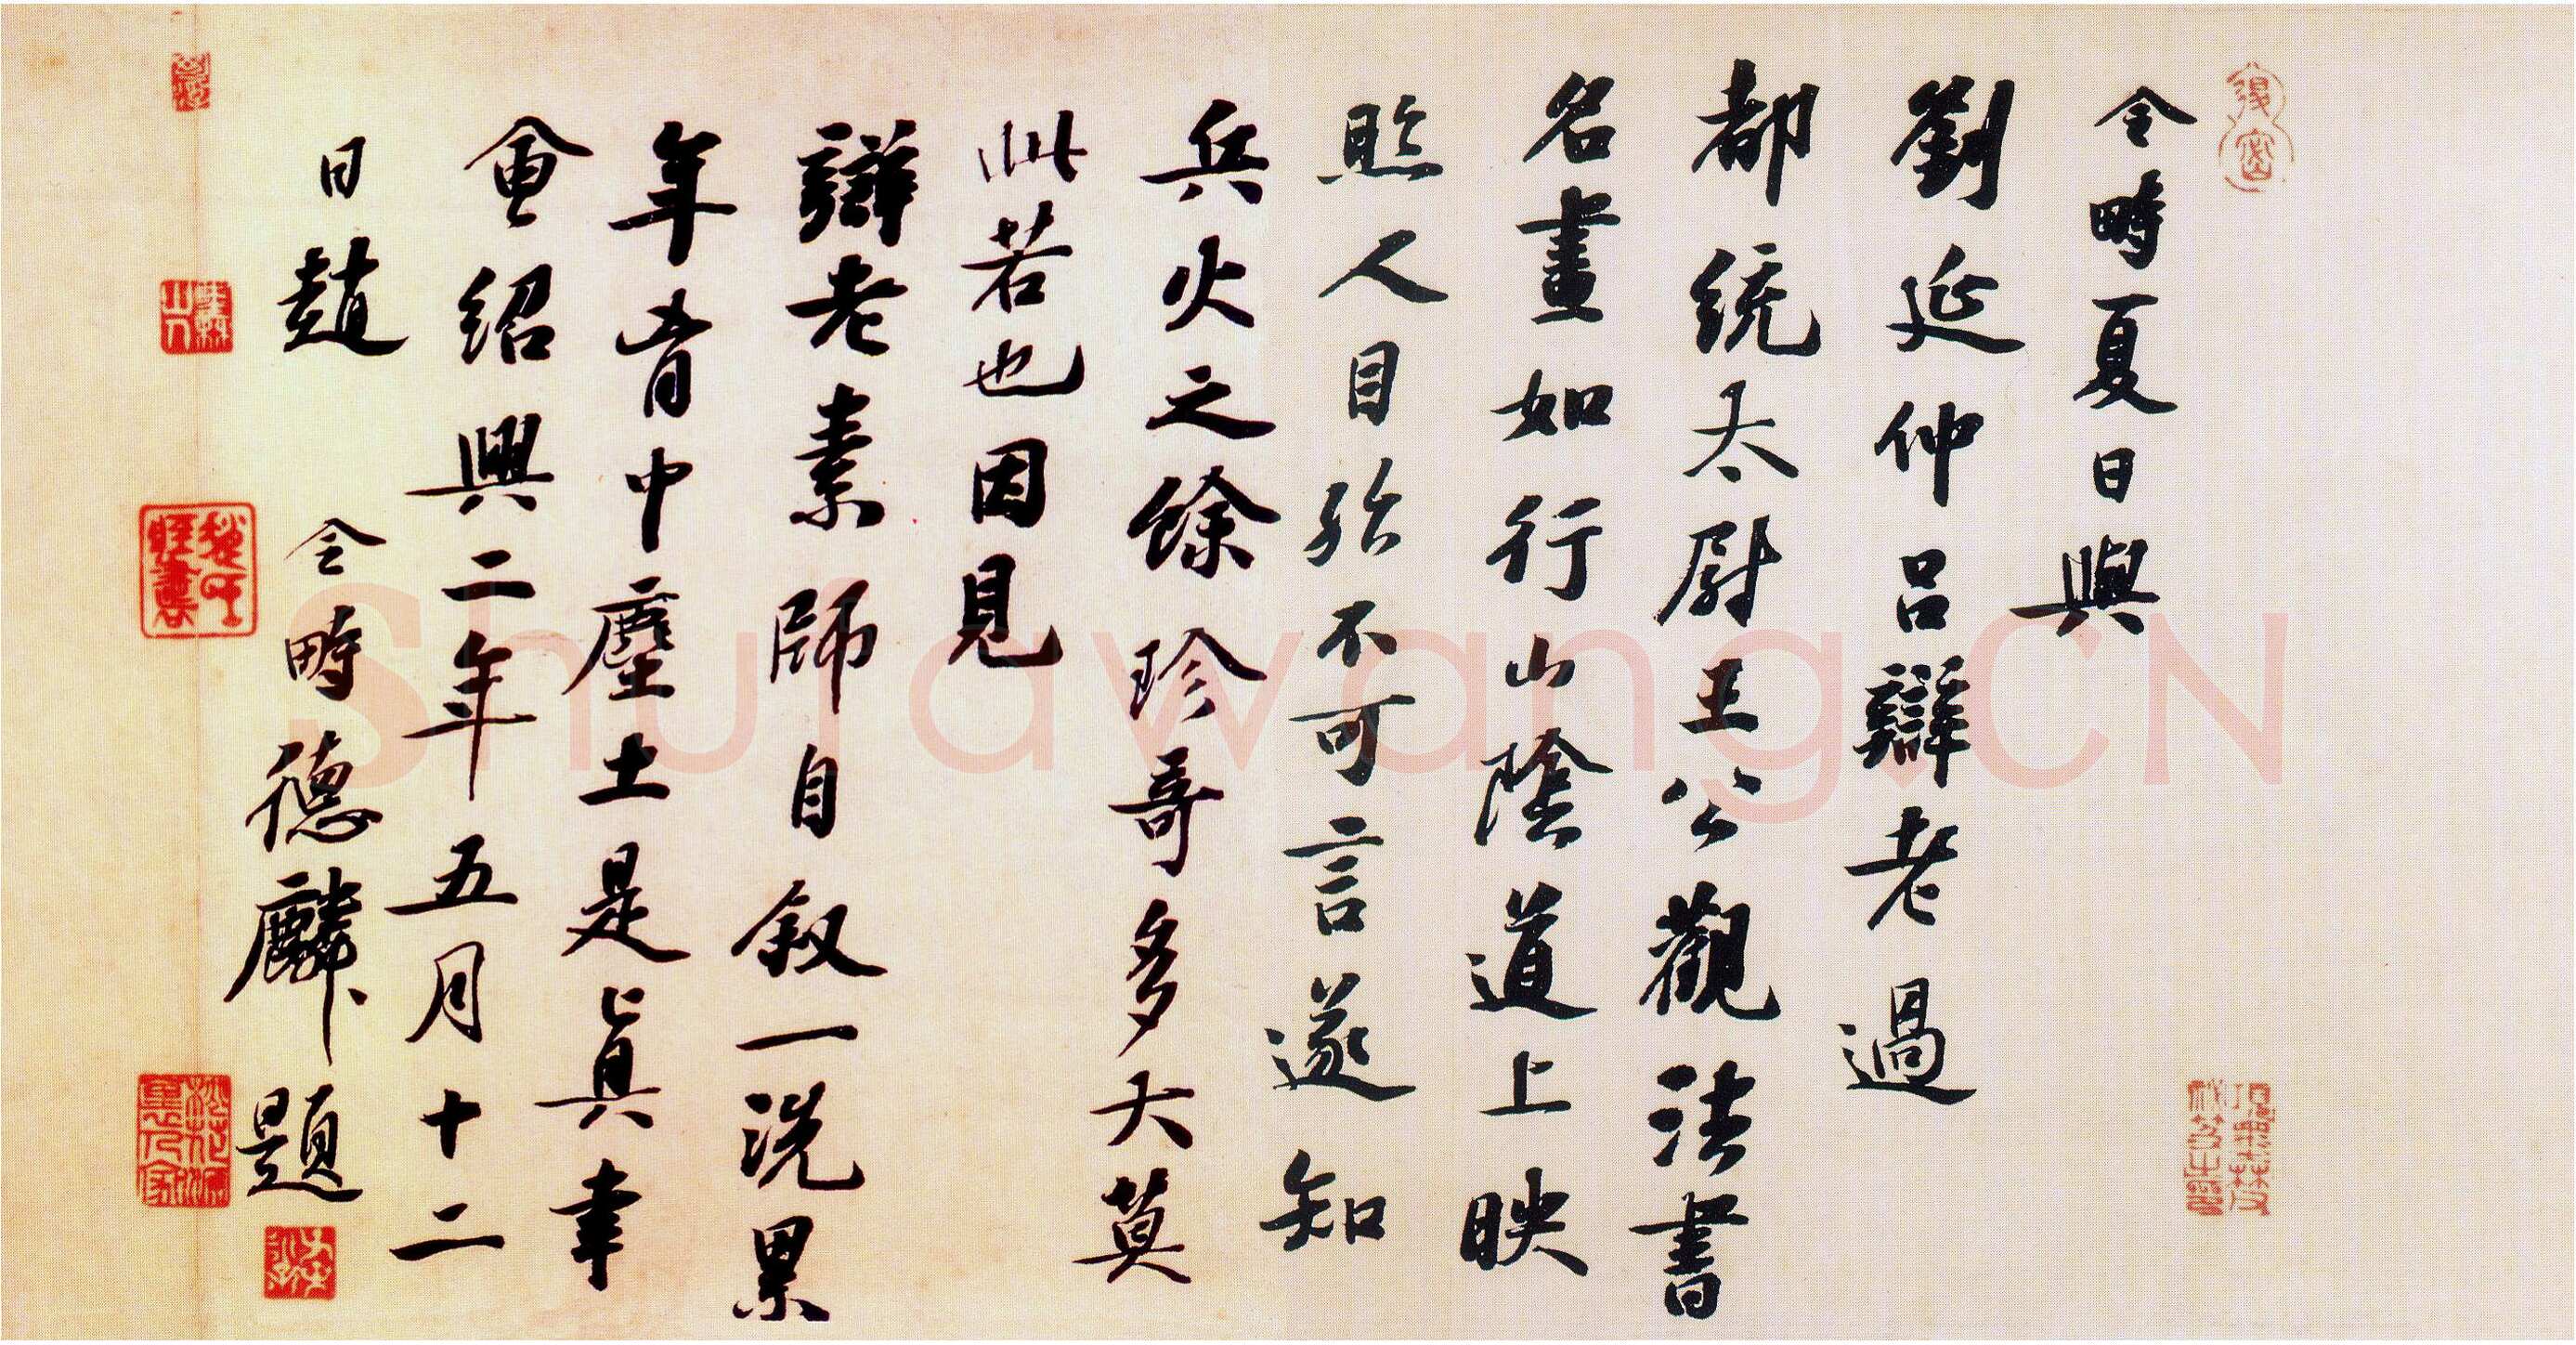 令畤夏日與
劉延仲呂辯老過
都統太尉王公觀法書
名畫如行山陰道上映
照人目殆不可言遂知
兵火之餘珍哥多大莫
此若也因見
辯老素師自叙一洗累
年胷中塵土是眞幸
會紹興二年五月十二
日趙 令畤德麟題
Shufawang.CN